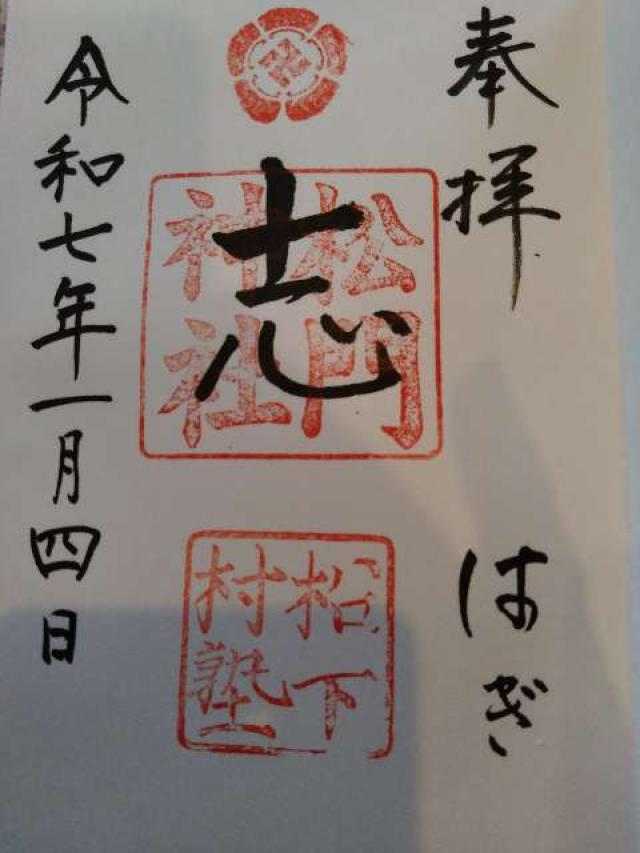 奉拝
はぎ
志
松門
神社
松下
村塾
令和七年一月四日